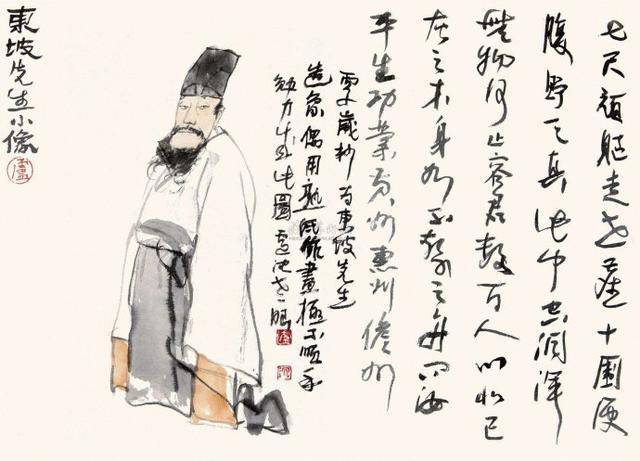 七尺頑軀走世塵十圍便
腹貯天真此中空洞渾
無物何止容君數百人心似已
灰之木身如不繫之舟問汝
平生功業黃州惠州儋州
歲杪為東坡先生
造象偶用熟紙作畫極不順手
勉力成此圖
東坡先生小像